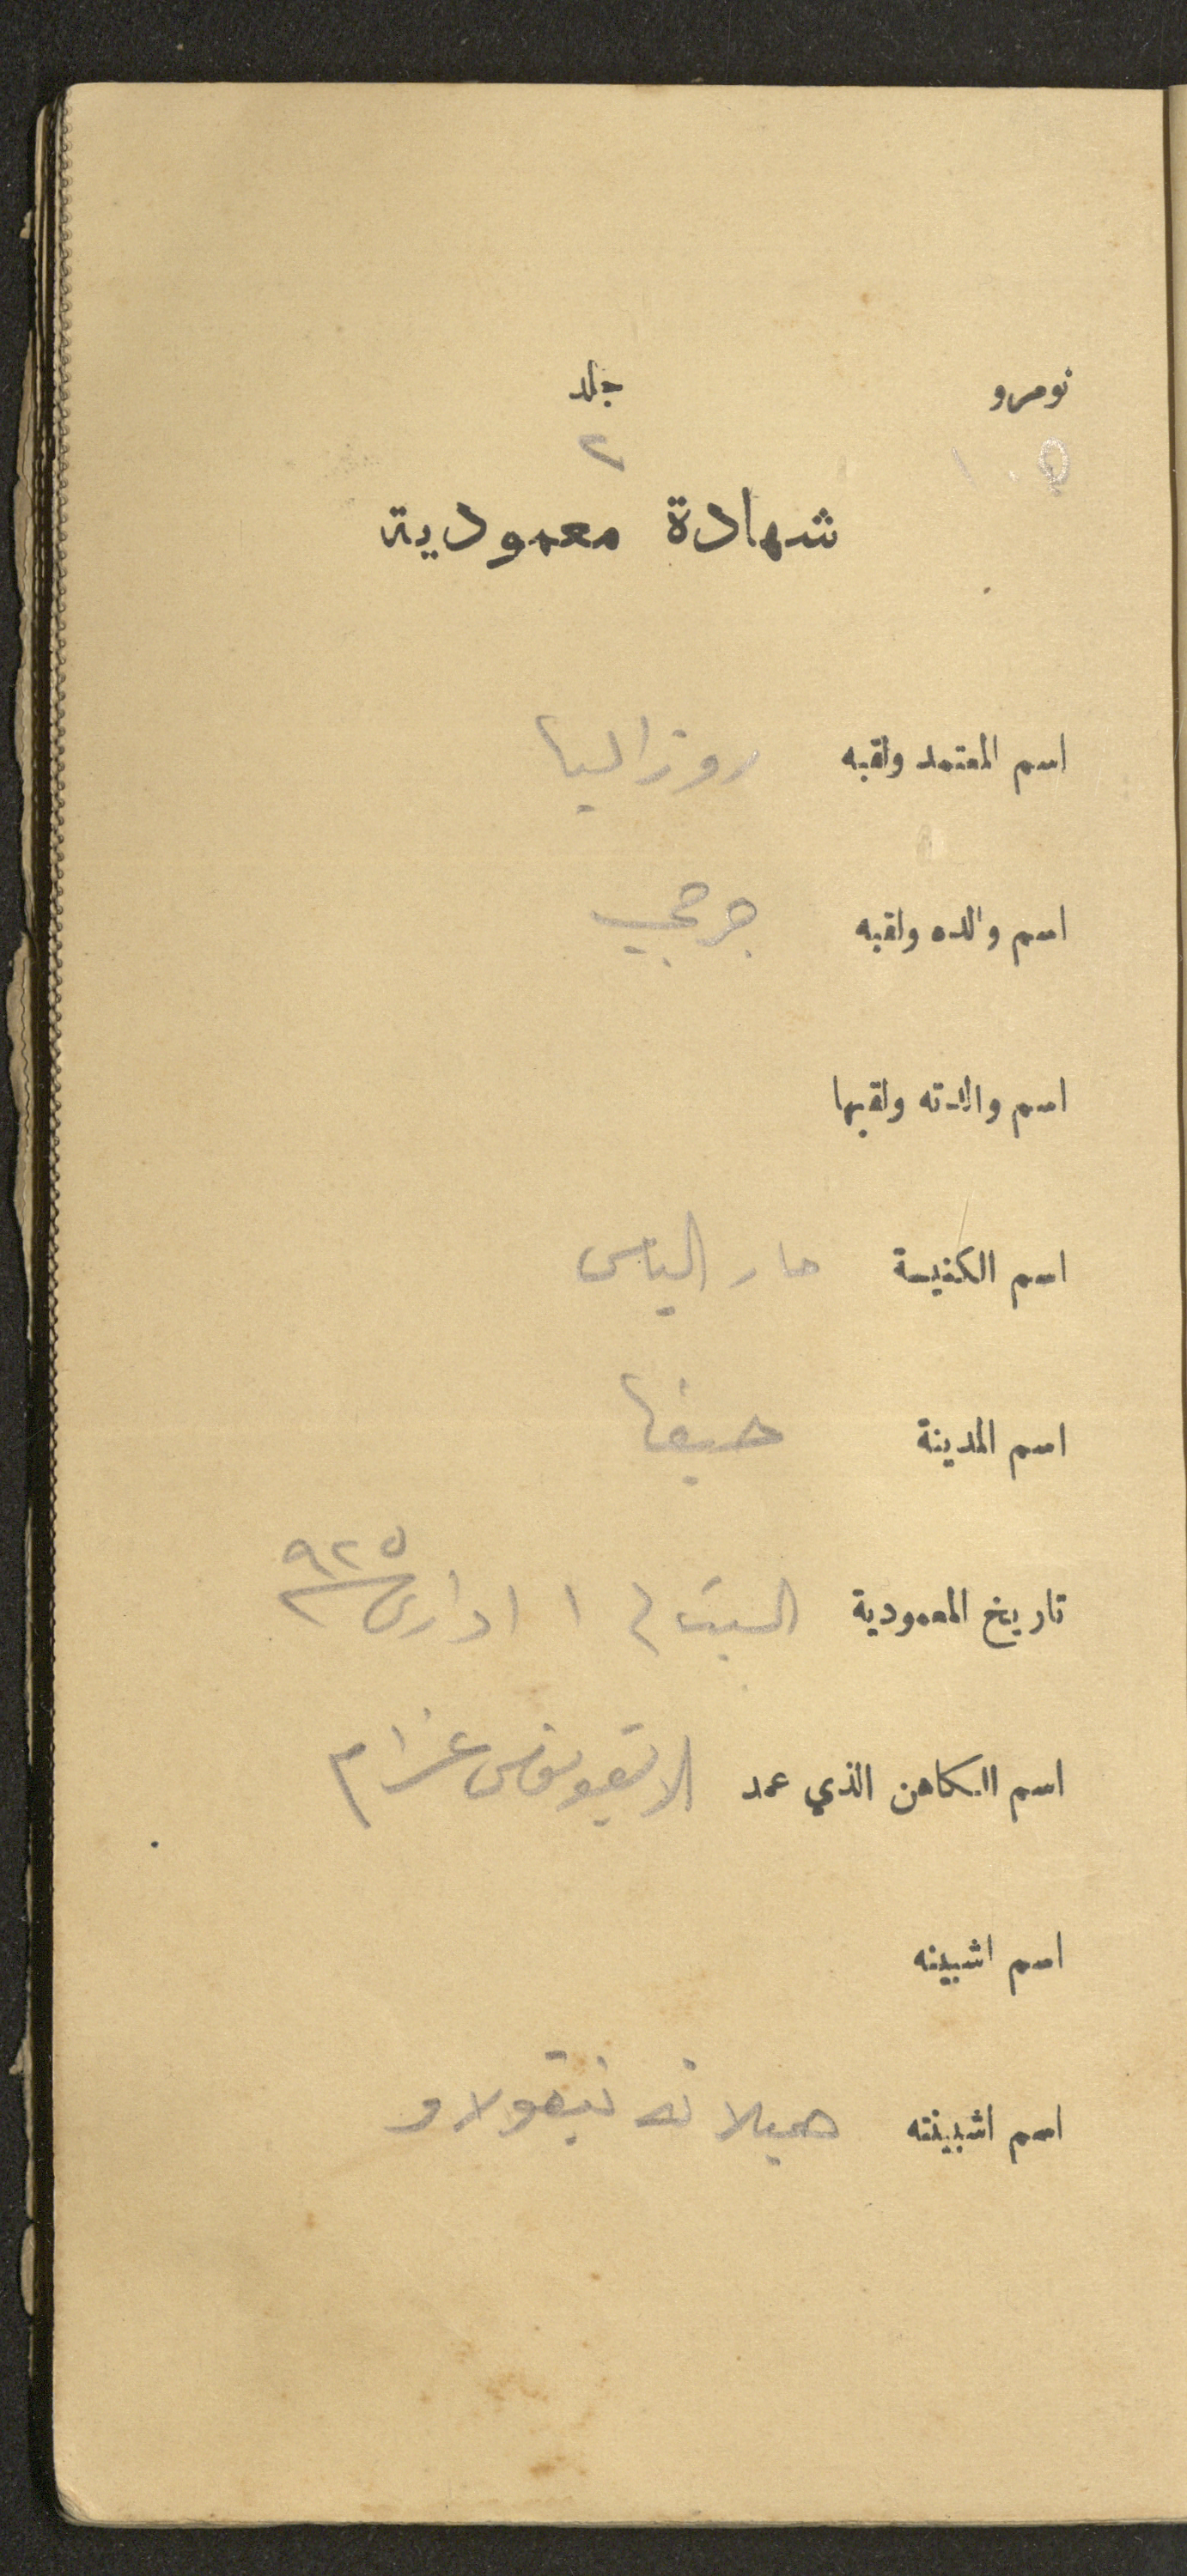 نومرو جلد
١٠٥ ٢
شهادة معمودية
اسم المعتمد ولقبه روزاليا
اسم والده ولقبه جرجي
اسم والدته ولقبها
اسم الكنيسة مار الياس
اسم المدينة حيفا
تاريخ المعمودية السبت اذار ٩٢٥
اسم الكاهن الذي عمد عزام
اسم اشبينه
اسم اشبينته هيلانه نيقولاو